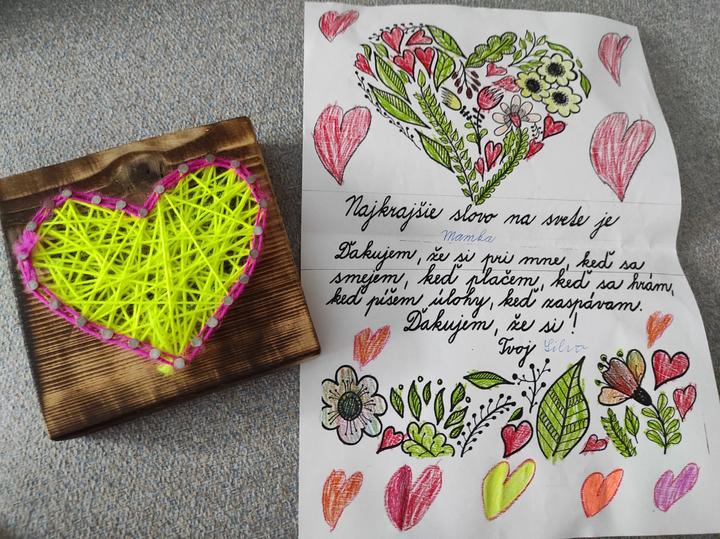 Najkrajšie slovo na svete je
Mamka
Ďakujem, že si pri mne, keď sa
smejem, keď plačem, keď sa hrám,
keď píšem úlohy, keď zaspávam.
Ďakujem, že si!
Tvoj